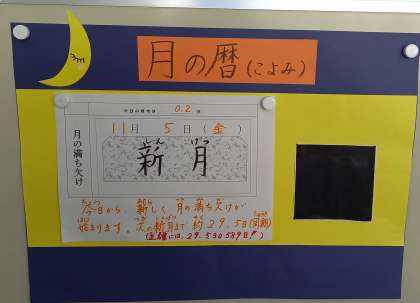 月の暦(こよみ)
今日の月令は 0.2 日
月の満ち欠け
11月 5日(金)
しん げつ
新月
今日から、新しく月の満ち欠けが
始まります。次の新月まで約29.5日(周期)
(正確には、29.530589日!)